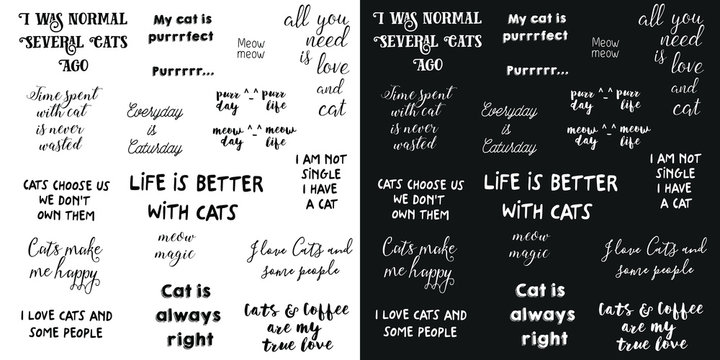 I WAS NORMAL
SEVERAL CATS
AGO
My cat is
purrrfect
Purrrrr...
Meow
meow
all you
need
is love
and
cat
Time spent
with cat
is never
wasted
Everyday
is
Caturday
purr ^_^ purr
day life
meow ^_^ meow
day life
I AM NOT
SINGLE
I HAVE
A CAT
CATS CHOOSE US
WE DON'T
OWN THEM
LIFE IS BETTER
WITH CATS
Cats make
me happy
meow
magic
I love Cats and
some people
I LOVE CATS AND
SOME PEOPLE
Cat is
always
right
Cats & Coffee
are my
true love
I WAS NORMAL
SEVERAL CATS
AGO
My cat is
purrrfect
Purrrrr...
Meow
meow
all you
need
is love
and
cat
Time spent
with cat
is never
wasted
Everyday
is
Caturday
purr ^_^ purr
day life
meow ^_^ meow
day life
I AM NOT
SINGLE
I HAVE
A CAT
CATS CHOOSE US
WE DON'T
OWN THEM
LIFE IS BETTER
WITH CATS
Cats make
me happy
meow
magic
I love Cats and
some people
I LOVE CATS AND
SOME PEOPLE
Cat is
always
right
Cats & Coffee
are my
true love